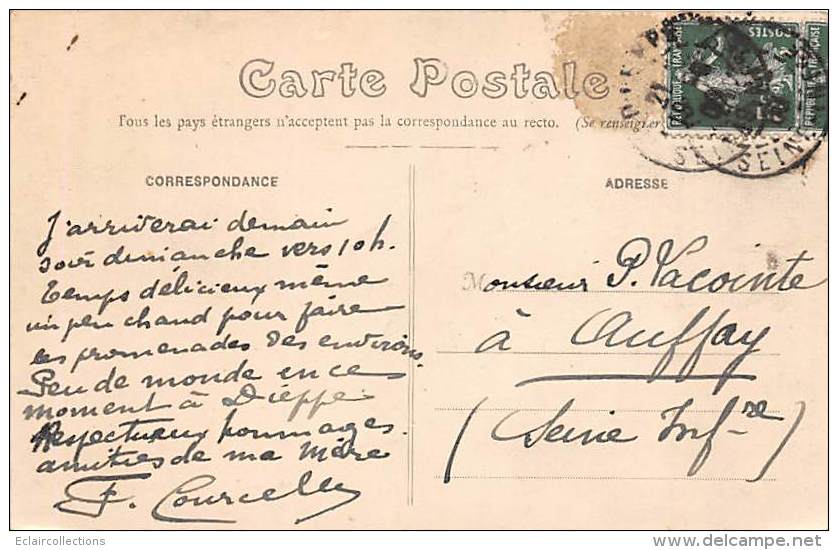 Carte Postale
Tous les pays étrangers n'acceptent pas la correspondance au recto. (Se renseigner
CORRESPONDANCE
J'arriverai demain
soir dimanche vers 10 h.
Temps délicieux même
un peu chaud pour faire
les promenades des environs.
Peu de monde en ce
moment à Dieppe
Respectueux hommages.
amitiés de ma mère
F. Courcelle
ADRESSE
Monsieur P. Lacointe
à Auffay
(Seine Infre)
POSTES
RÉPUBLIQUE FRANÇAISE
DIEPPE
21
SEINE
Eclaircollections
www.delcampe.net